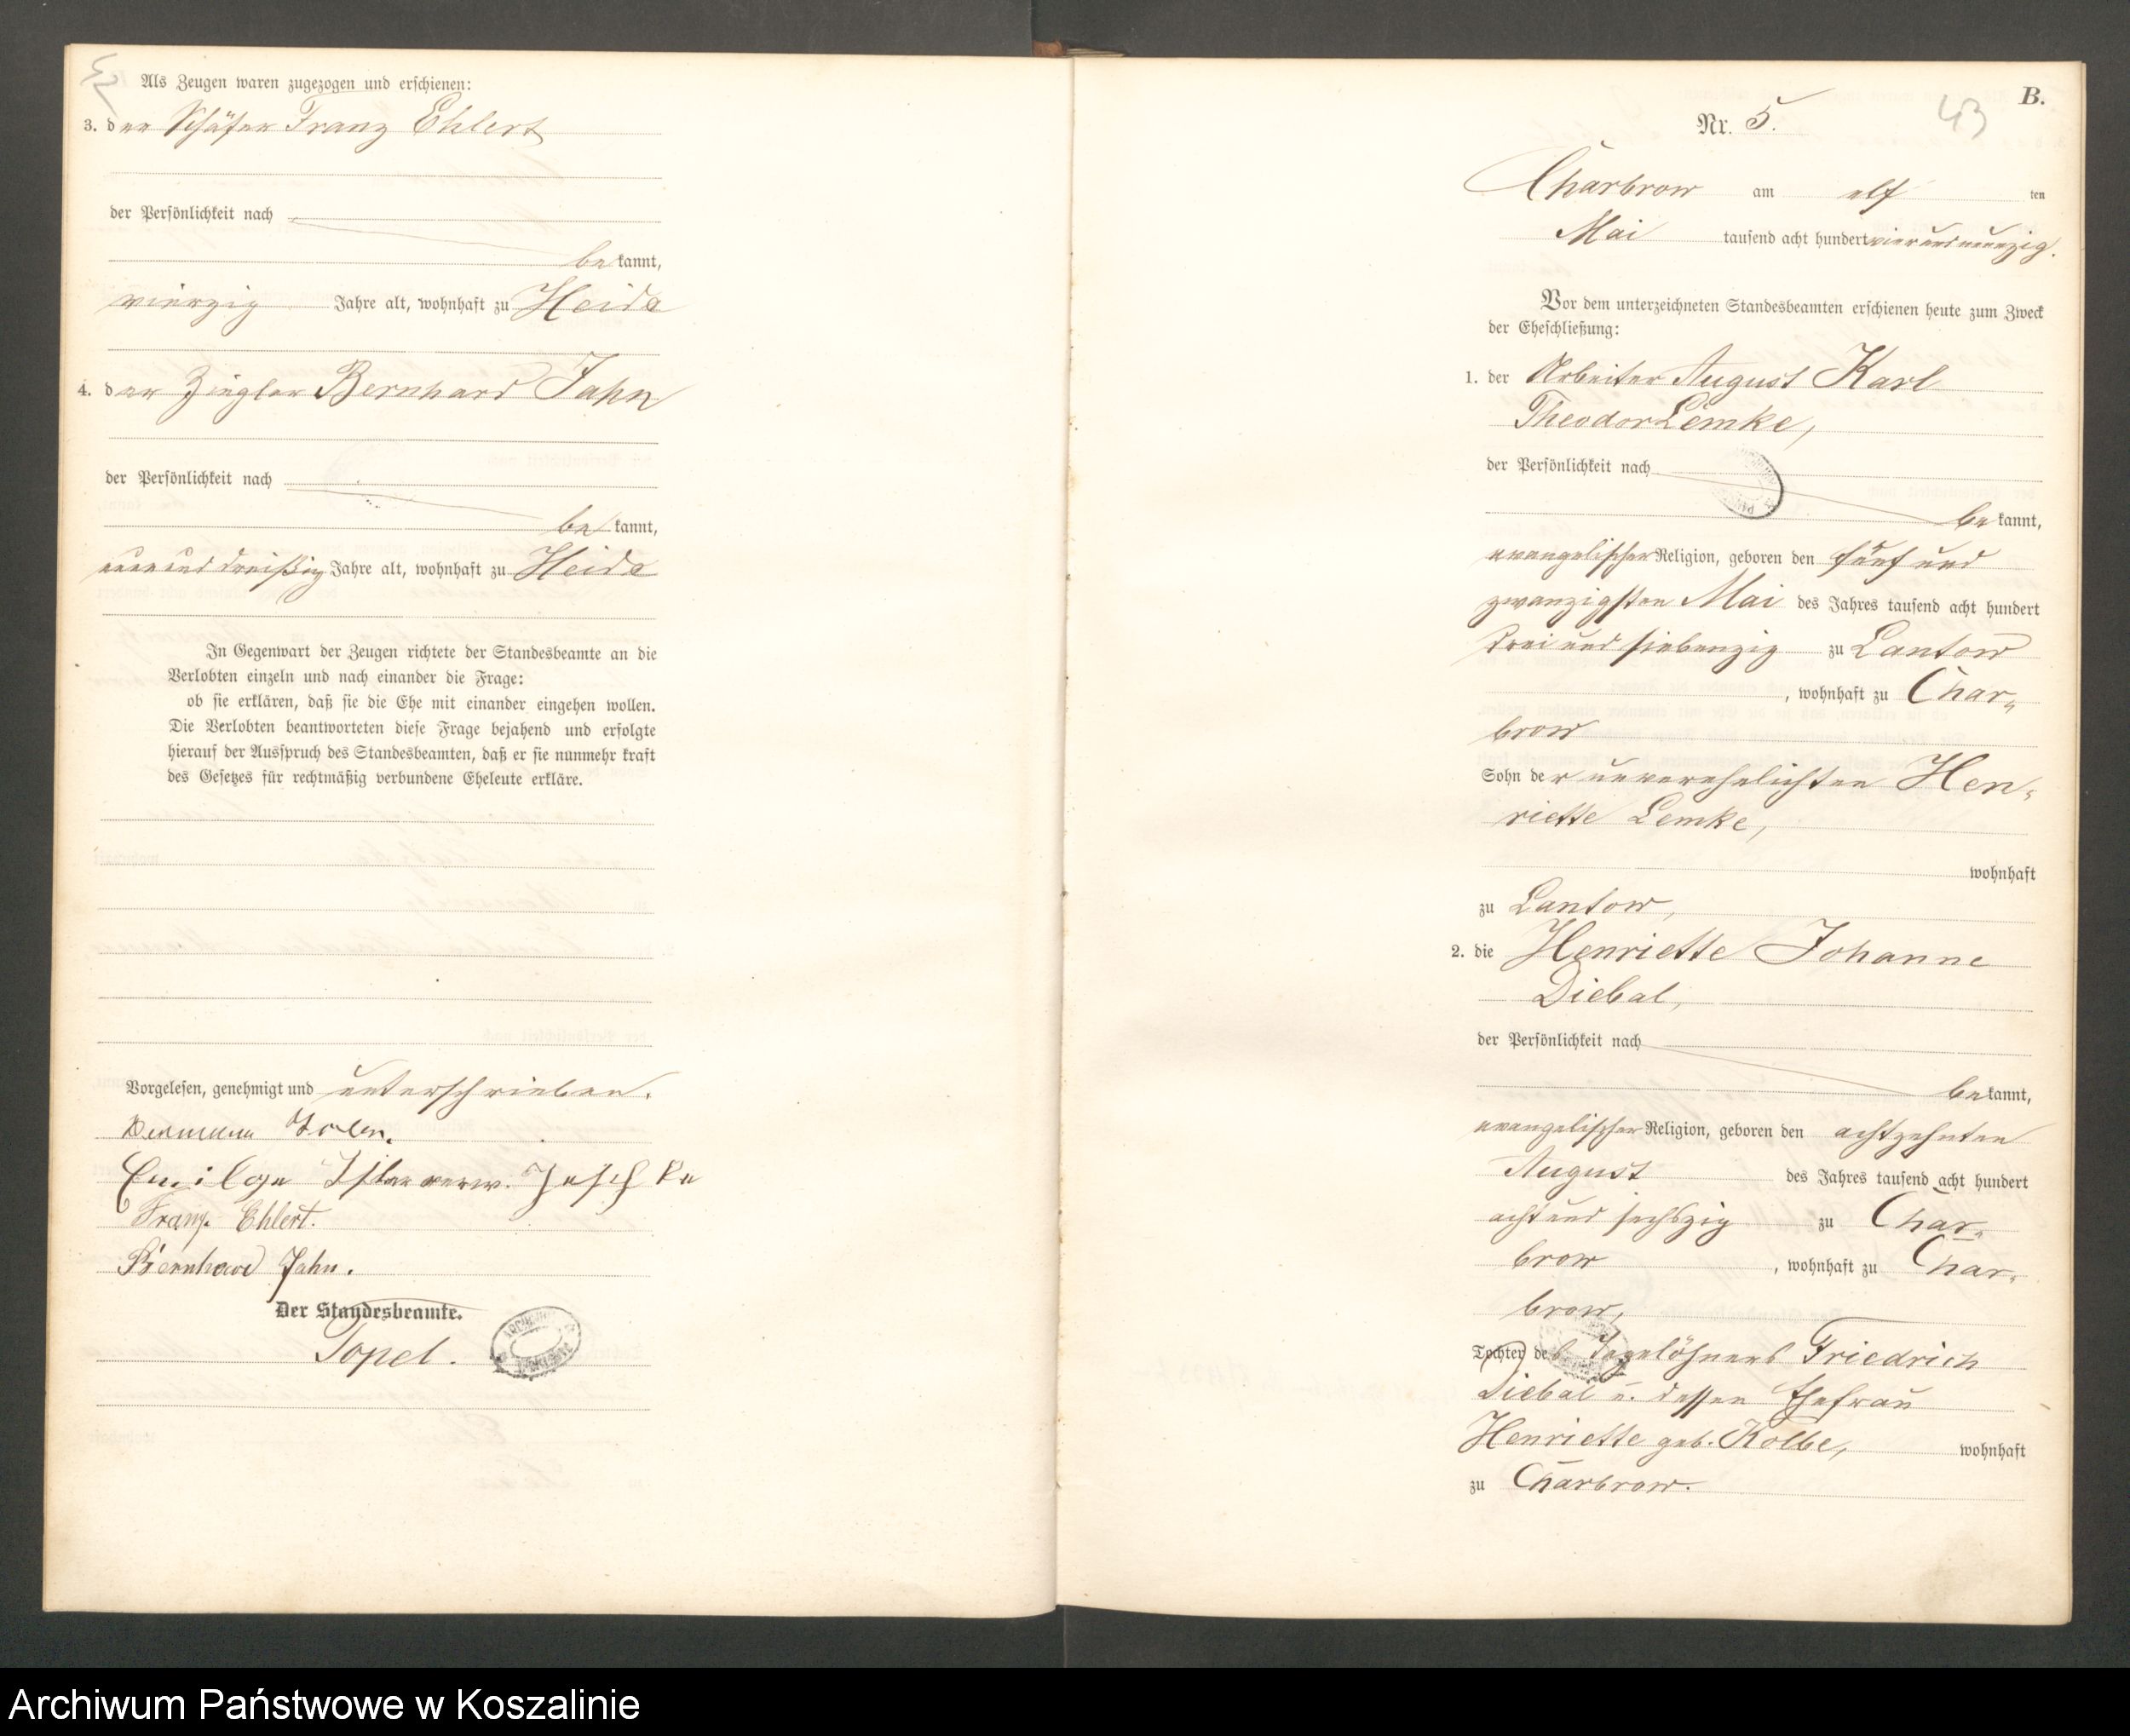 Als Zeugen waren zugezogen und erschienen:
3. der Schäfer Franz Ehlert
der Persönlichkeit nach
bekannt,
vierzig Jahre alt, wohnhaft zu Heide
4. der Ziegler Bernhard Jahn
der Persönlichkeit nach
bekannt,
und dreißig Jahre alt, wohnhaft zu Heide
In Gegenwart der Zeugen richtete der Standesbeamte an die
Verlobten einzeln und nach einander die Frage:
ob sie erklären, daß sie die Ehe mit einander eingehen wollen.
Die Verlobten beantworteten diese Frage bejahend und erfolgte
hierauf der Ausspruch des Standesbeamten, daß er sie nunmehr kraft
des Gesetzes für rechtmäßig verbundene Eheleute erkläre.
Vorgelesen, genehmigt und unterschrieben.
Hermann
verw. Jeschke
Franz Ehlert.
Bernhard Jahn.
Der Standesbeamte.
Topel.
B.
43
Nr. 5.
Charbrow am elften
Mai tausend acht hundert vier und neunzig.
Vor dem unterzeichneten Standesbeamten erschienen heute zum Zweck
der Eheschließung:
1. der Arbeiter August Karl
Theodor Lemke,
der Persönlichkeit nach
bekannt,
evangelischer Religion, geboren den fünf und
zwanzigsten Mai des Jahres tausend acht hundert
drei und siebenzig zu Lantow
, wohnhaft zu Char-
brow
Sohn der unverehelichten Hen-
riette Lemke,
wohnhaft
zu Lantow,
2. die Henriette Johanne
Diebal,
der Persönlichkeit nach
bekannt,
evangelischer Religion, geboren den achtzehnten
August des Jahres tausend acht hundert
acht und sechszig zu Char-
brow , wohnhaft zu Char-
brow,
Tochter des Tagelöhners Friedrich
Diebal u. dessen Ehefrau
Henriette geb. Kolbe, wohnhaft
zu Charbrow.
Archiwum Państwowe w Koszalinie